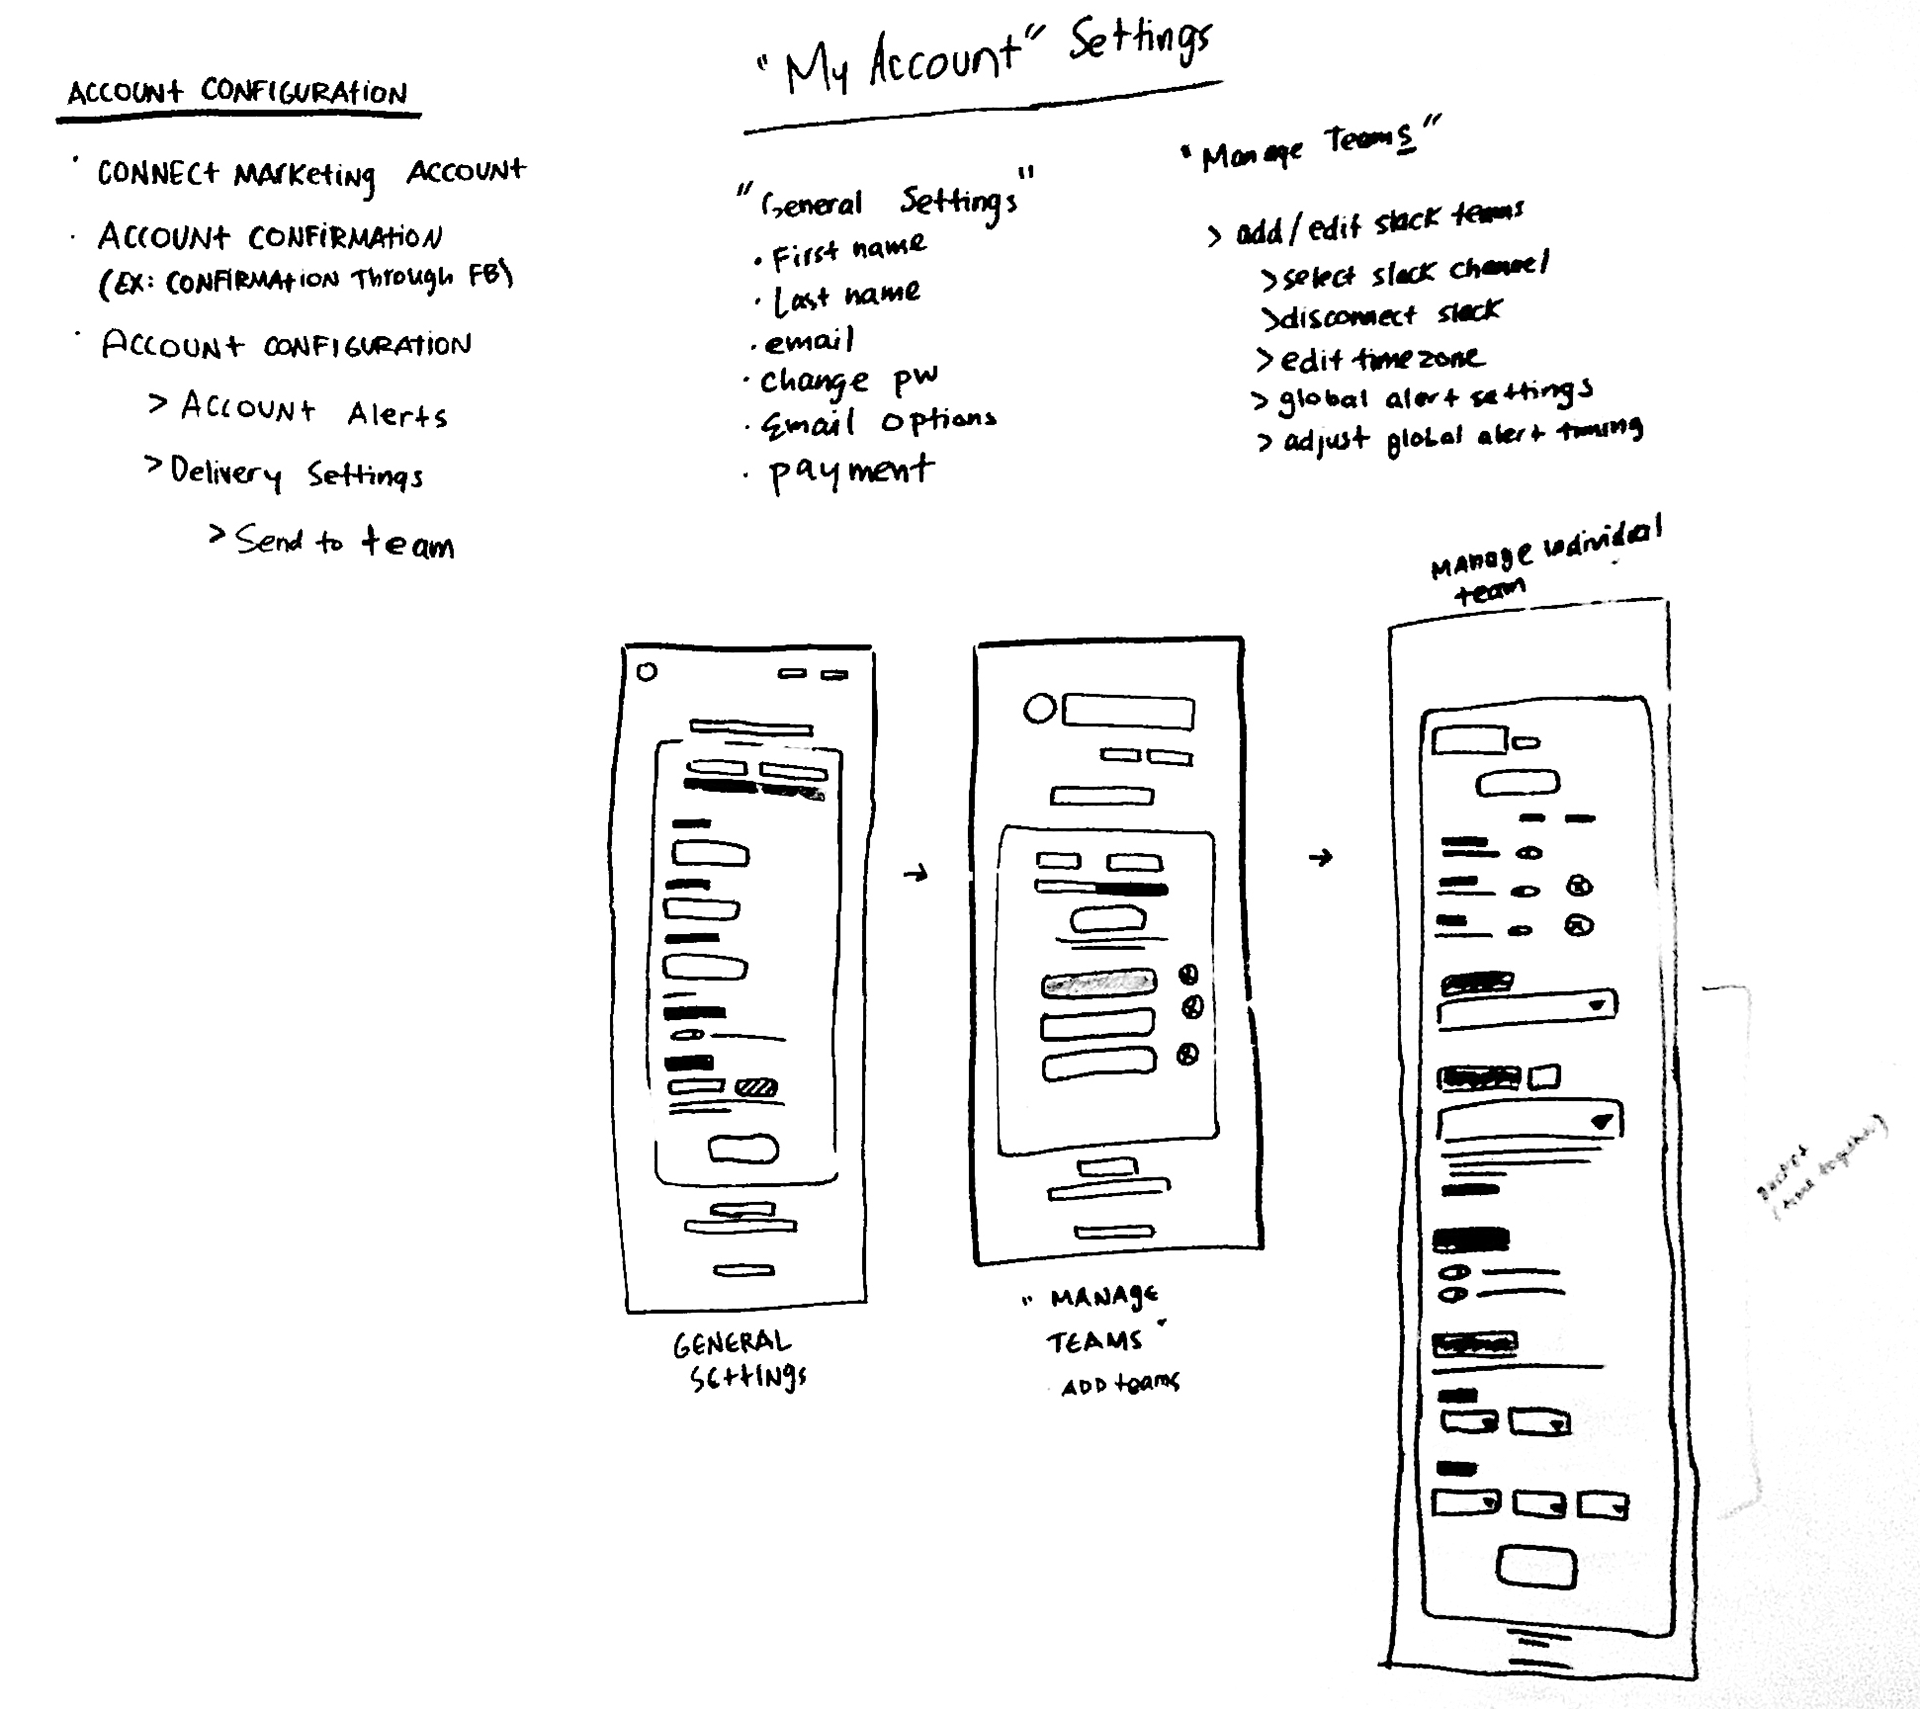 "My Account" Settings
ACCOUNT CONFIGURATION
· CONNECT MARKETING ACCOUNT
· ACCOUNT CONFIRMATION
(EX: CONFIRMATION Through FB)
· ACCOUNT CONFIGURATION
> ACCOUNT Alerts
> Delivery Settings
> Send to team
"General Settings"
· First name
· Last name
· email
· change pw
· Email options
· payment
"Manage Teams"
> add/edit slack teams
> select slack channel
> disconnect slack
> edit timezone
> global alert settings
> adjust global alert timing
MANAGE individual
team
→
→
GENERAL
SETTINGS
"MANAGE
TEAMS"
· ADD teams